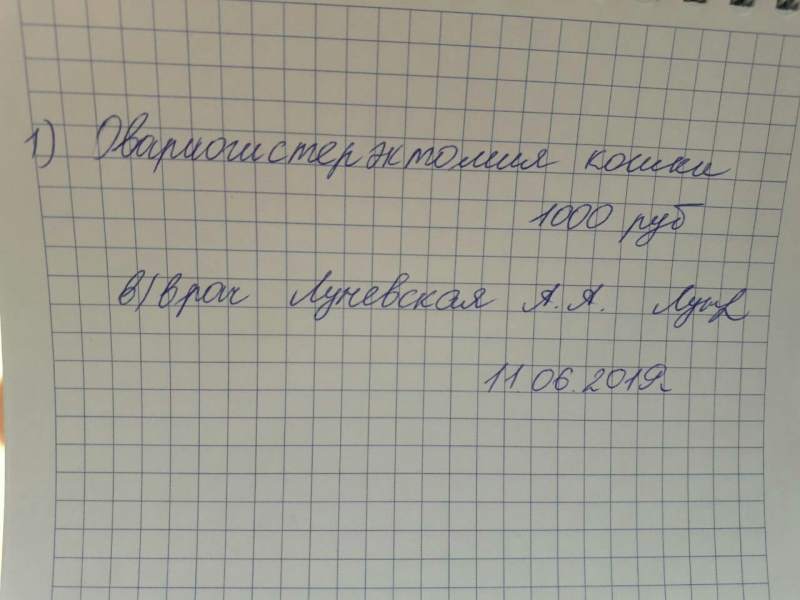 1) Овариогистерэктомия кошки
1000 руб
в/врач Луневская А.А.
11.06.2019г.